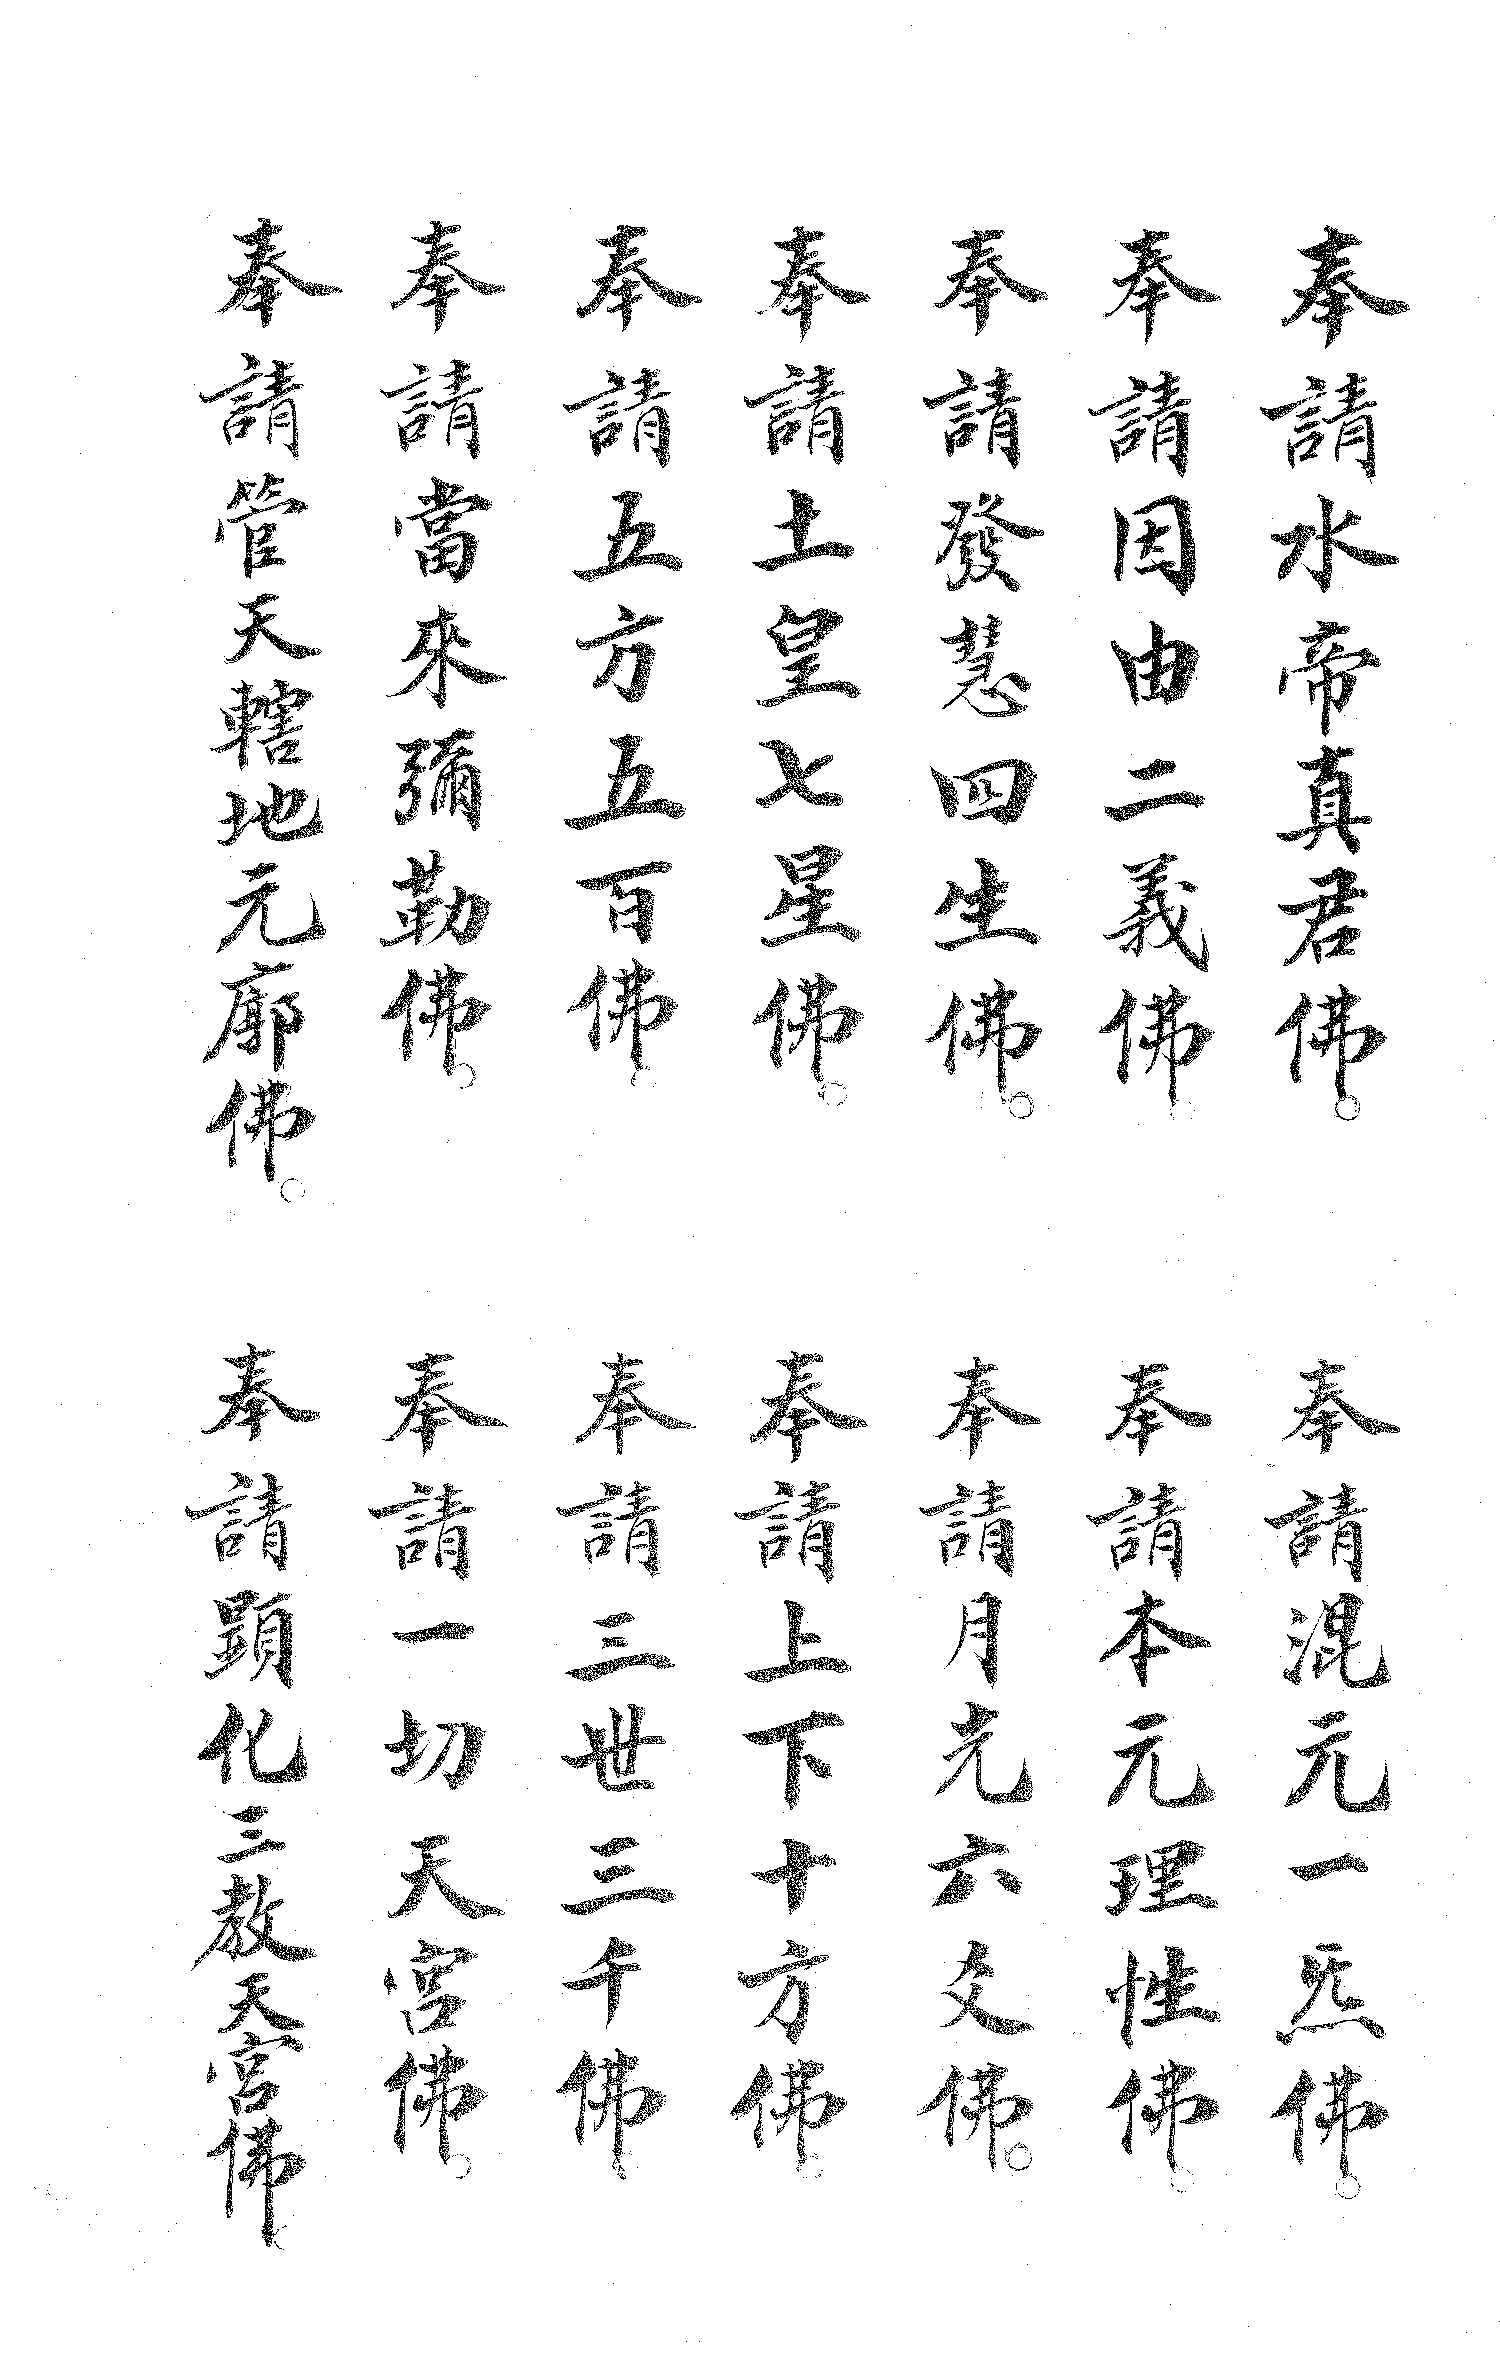 奉請水帝真君佛。
奉請混元一炁佛。
奉請因由二義佛。
奉請本元理性佛。
奉請發慧四生佛。
奉請月光六爻佛。
奉請土皇七星佛。
奉請上下十方佛。
奉請五方五百佛。
奉請三世三千佛。
奉請當來彌勒佛。
奉請一切天宮佛。
奉請管天轄地元廓佛。
奉請顕化三教天宮佛。